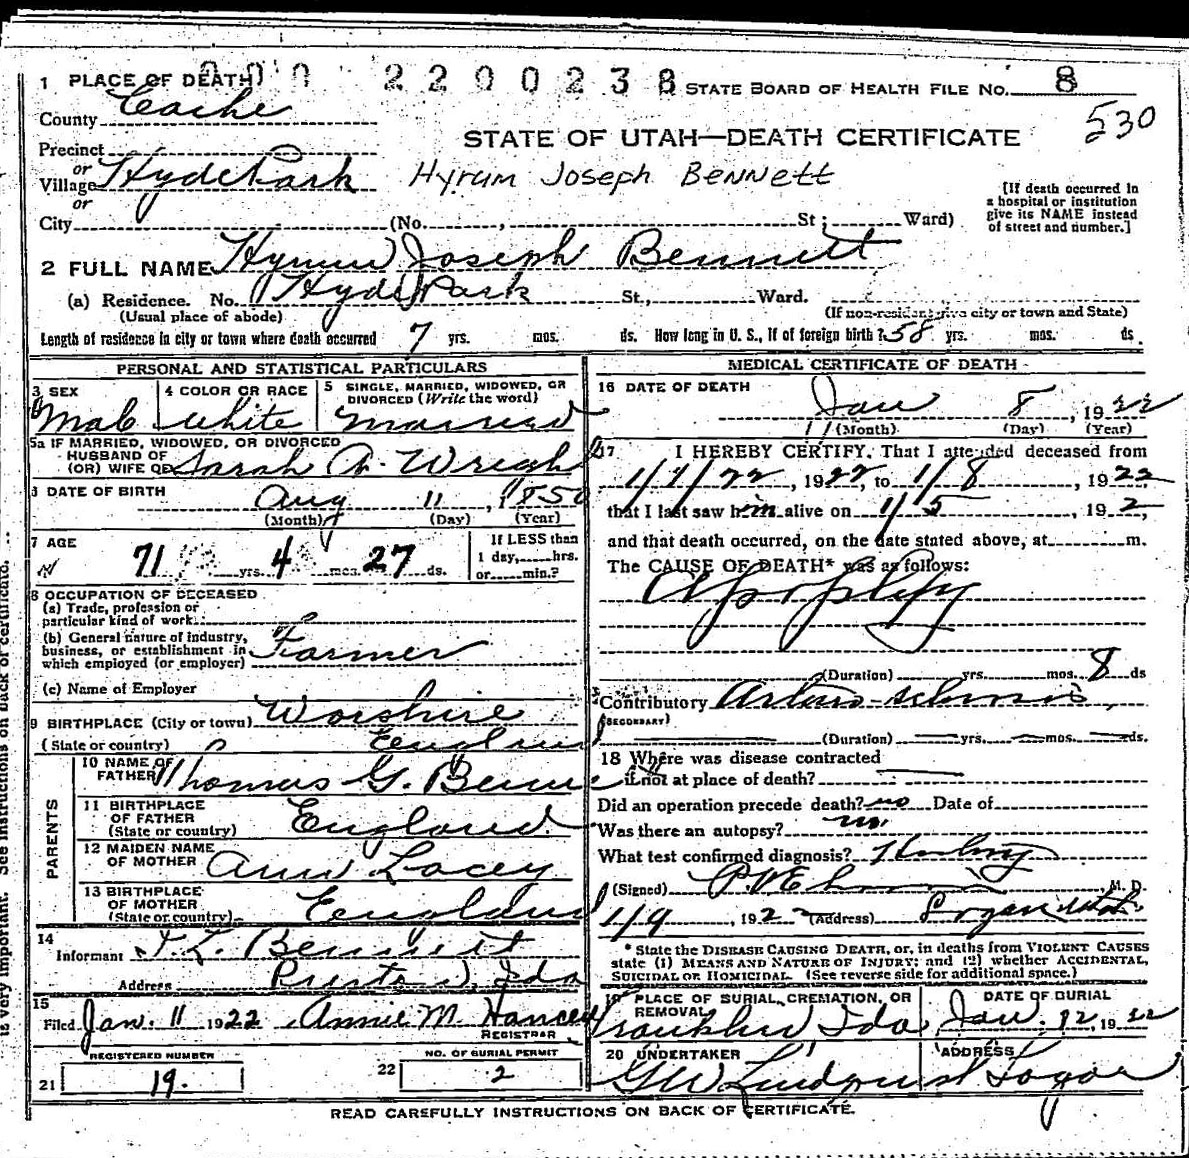 1 PLACE OF DEATH 2200238 STATE BOARD OF HEALTH FILE NO. 8
County Cache
530
STATE OF UTAH—DEATH CERTIFICATE
Precinct
or
Village Hyde Park Hyrum Joseph Bennett
or
[If death occurred in a hospital or institution give its NAME instead of street and number.]
City (No. , St; Ward)
2 FULL NAME Hyrum Joseph Bennett
(a) Residence. No. Hyde Park St., Ward.
(Usual place of abode) (If non-resident give city or town and State)
Length of residence in city or town where death occurred 7 yrs. mos. ds. How long in U. S., if of foreign birth? 58 yrs. mos. ds.
PERSONAL AND STATISTICAL PARTICULARS
3 SEX 4 COLOR OR RACE 5 SINGLE, MARRIED, WIDOWED, OR DIVORCED (Write the word)
Male white married
5a IF MARRIED, WIDOWED, OR DIVORCED
HUSBAND OF
(OR) WIFE OF Sarah A. Wright
DATE OF BIRTH Aug 11, 1850
(Month) (Day) (Year)
7 AGE 71 yrs. 4 mos. 27 ds.
If LESS than 1 day, hrs. or min.?
8 OCCUPATION OF DECEASED
(a) Trade, profession or particular kind of work
(b) General nature of industry, business, or establishment in which employed (or employer) Farmer
(c) Name of Employer
9 BIRTHPLACE (City or town)
(State or country) England
PARENTS
10 NAME OF FATHER Thomas G. Benne
11 BIRTHPLACE OF FATHER (State or country) England.
12 MAIDEN NAME OF MOTHER Ann Lacey
13 BIRTHPLACE OF MOTHER (State or country) England
14 Informant Bennett
Address Preston, Ida
15 Filed Jan. 11 1922, Annie M. Hancey
REGISTRAR
REGISTERED NUMBER NO. OF BURIAL PERMIT
21 19. 22 2
MEDICAL CERTIFICATE OF DEATH
16 DATE OF DEATH
Jan 8, 1922
(Month) (Day) (Year)
17 I HEREBY CERTIFY, That I attended deceased from
, 1922, to 1/8, 1922
that I last saw him alive on 1/5, 192,
and that death occurred, on the date stated above, at m.
The CAUSE OF DEATH* was as follows:
Apoplexy
(Duration) yrs. mos. 8 ds
Contributory
(SECONDARY)
(Duration) yrs. mos. ds.
18 Where was disease contracted
if not at place of death?
Did an operation precede death? no Date of
Was there an autopsy? no.
What test confirmed diagnosis?
(Signed) M. D.
1/9, 1922 (Address) Logan Utah.
* State the DISEASE CAUSING DEATH, or, in deaths from VIOLENT CAUSES
state (1) MEANS AND NATURE OF INJURY; and (2) whether ACCIDENTAL,
SUICIDAL OR HOMICIDAL. (See reverse side for additional space.)
19 PLACE OF BURIAL, CREMATION, OR REMOVAL DATE OF BURIAL
Franklin Ida Jan. 12, 1922
20 UNDERTAKER ADDRESS
G W Lindquist Logan
READ CAREFULLY INSTRUCTIONS ON BACK OF CERTIFICATE.
is very important. See instructions on back of certificate.